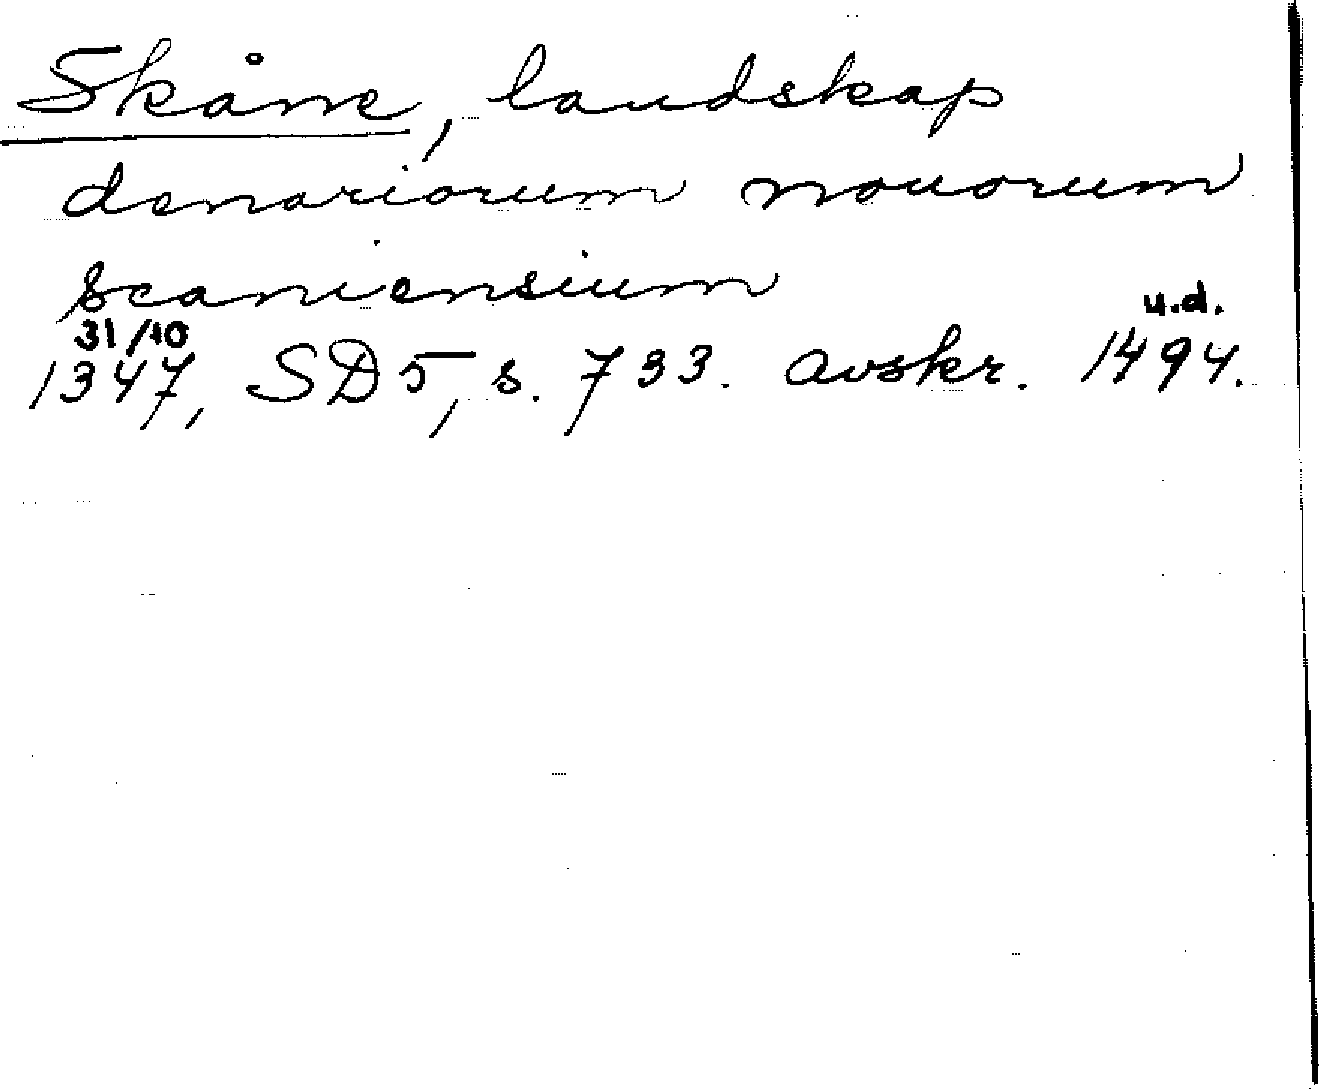 Skåne, landskap
denariorum nouorum
scaniensium
31/10 u.d.
1347, SD 5, s. 733. avskr. 1494.